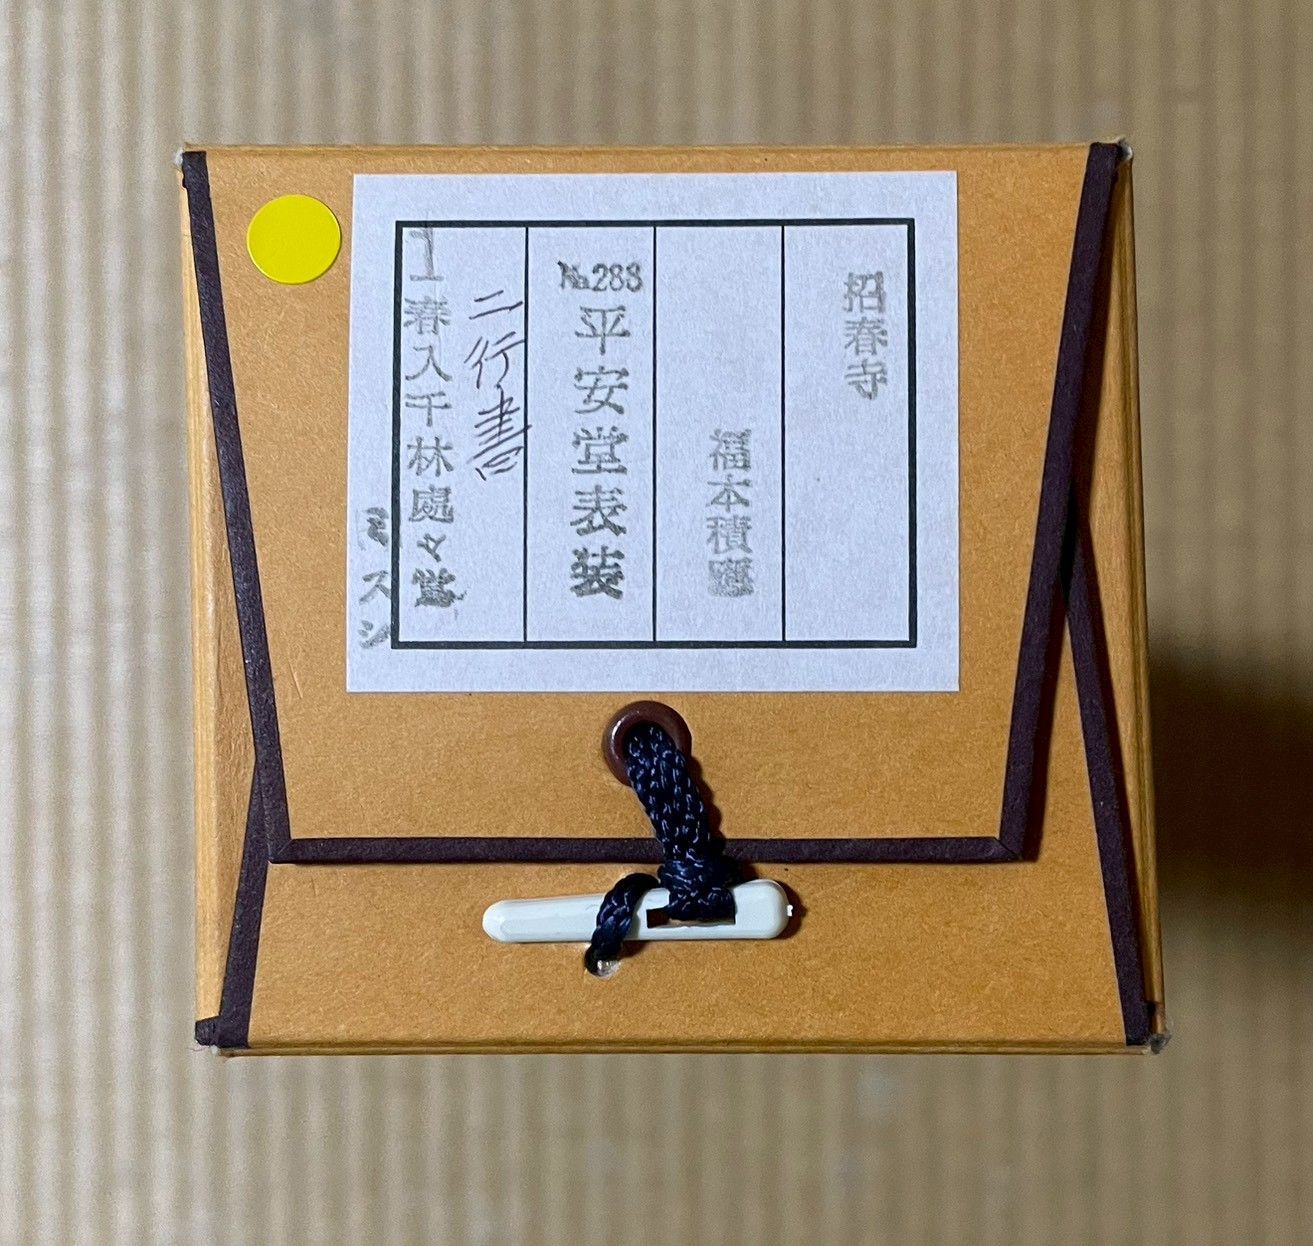 招春寺
福本積
№288
平安堂表装
二行書
春入千林處々鶯
ミスシ